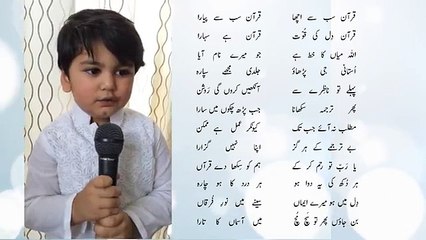 قرآن سب سے اچھا قرآن سب سے پیارا
قرآن دل کی قوّت قرآن ہے سہارا
اللہ میاں کا خط ہے جو میرے نام آیا
اُستانی جی پڑھاؤ جلدی مجھے سپارہ
پہلے تو ناظرے سے آنکھیں کروں گی روشن
پھر ترجمہ سکھانا جب پڑھ چکوں میں سارا
مطلب نہ آئے جب تک کیونکر عمل ہے ممکن
بے ترجمے کے ہر گز اپنا نہیں گزارا
یا ربّ تو رحم کر کے ہم کو سکھا دے قرآں
ہر دُکھ کی یہ دوا ہو ہر درد کا ہو چارہ
دل میں ہو میرے ایماں سینے میں نورِ فرقاں
بن جاؤں پھر تو سچ مچ میں آسماں کا تارا